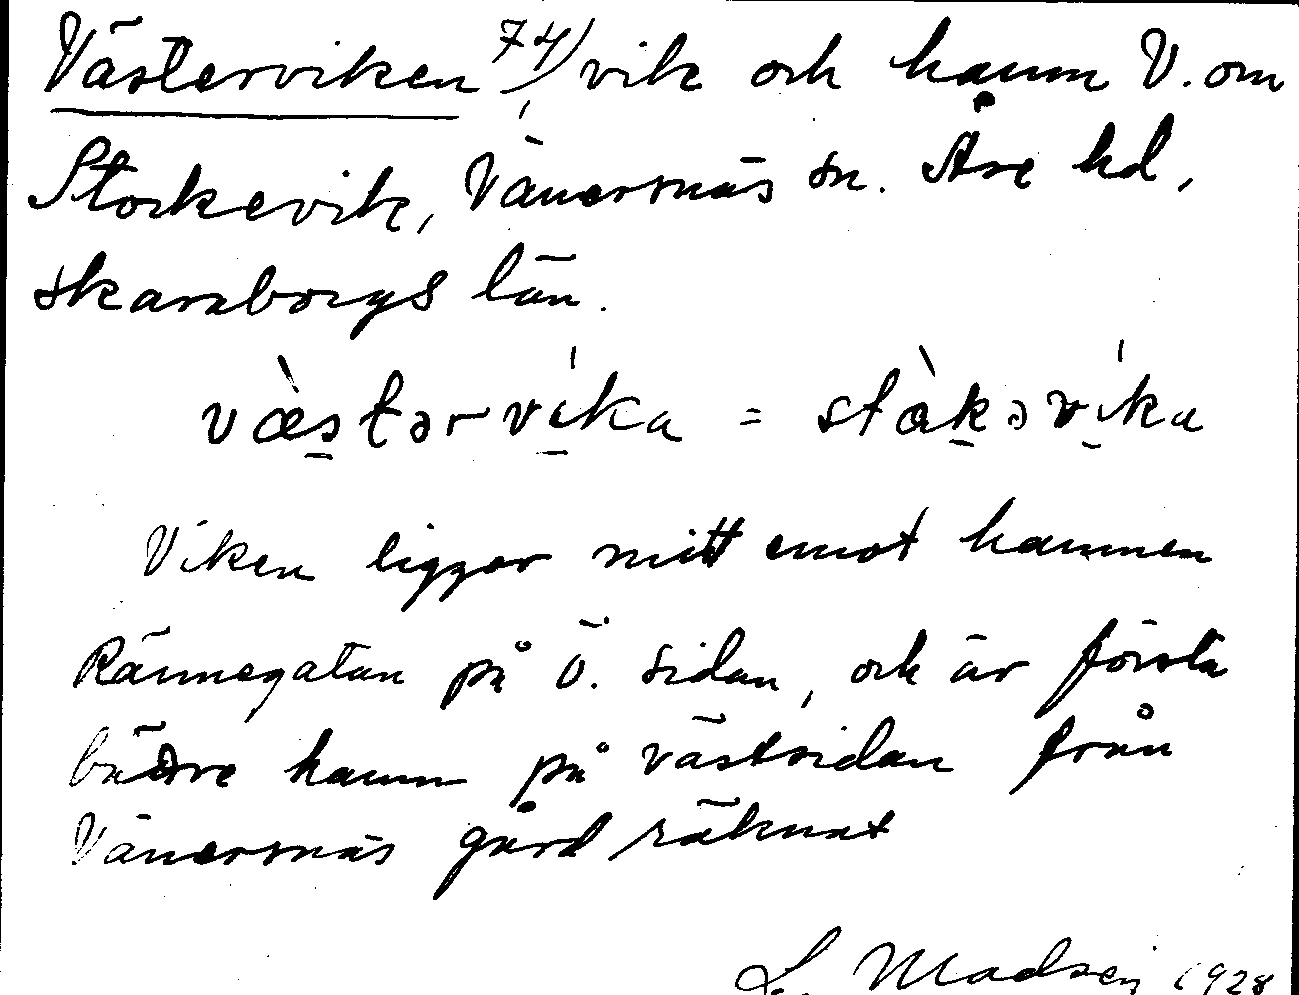 Västerviken 74) vik och hamn V. om
Storkevik, Vänersnäs sn. Åse hd,
Skaraborgs län.
væ̀stərvíka = stàkəvíka
Viken ligger mitt emot hamnen
Rännegatan på Ö. sidan, och är första
bättre hamn på västsidan från
Vänersnäs gård räknat
L. Madsen 1928